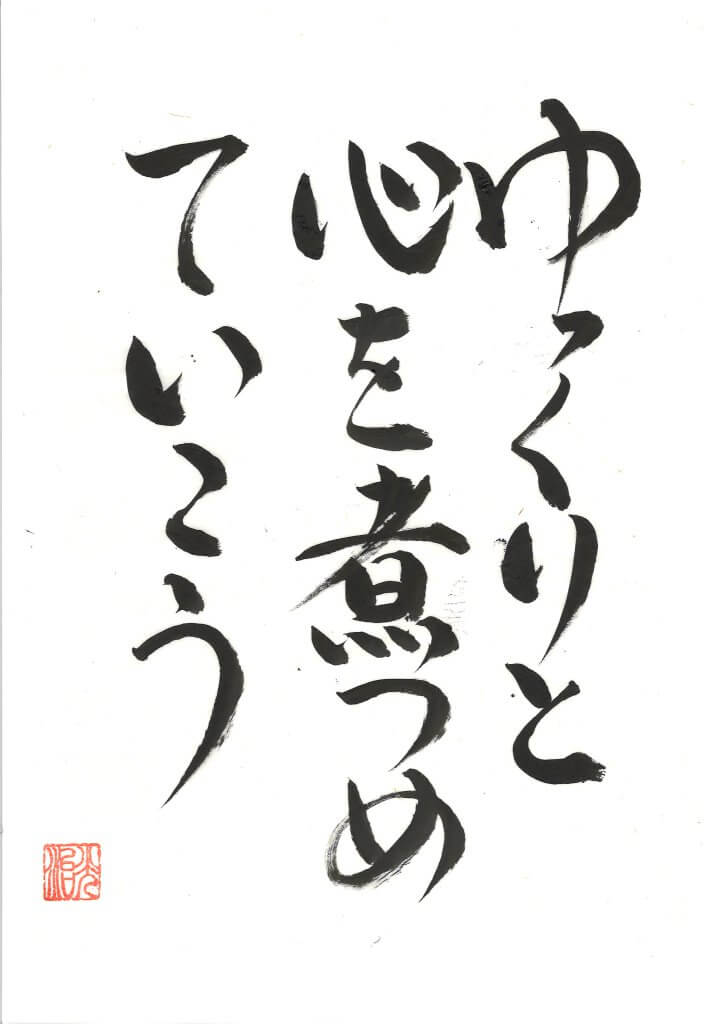 ゆっくりと
心を煮つめ
ていこう